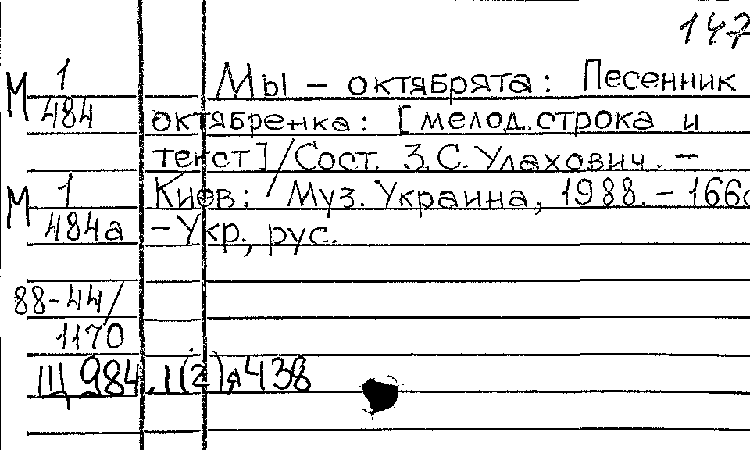 147
М 1/484 Мы – октябрята: Песенник
октябренка: [мелод. строка и
текст] / Сост. З.С. Улахович. –
М 1/484а Киев: Муз. Украина, 1988. – 166с
– Укр., рус.
88-44/
1170
Щ 984.1(2)я438